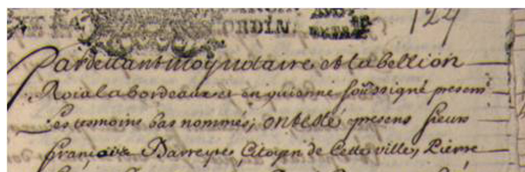 ORDIN.
124
Pardevant moy notaire et tabellion
Roial a bordeaux et en guienne soussigné presens
les tesmoins bas nommés, ont esté presens sieurs
françois Barreyre, Citoyen de Cette ville, Pierre